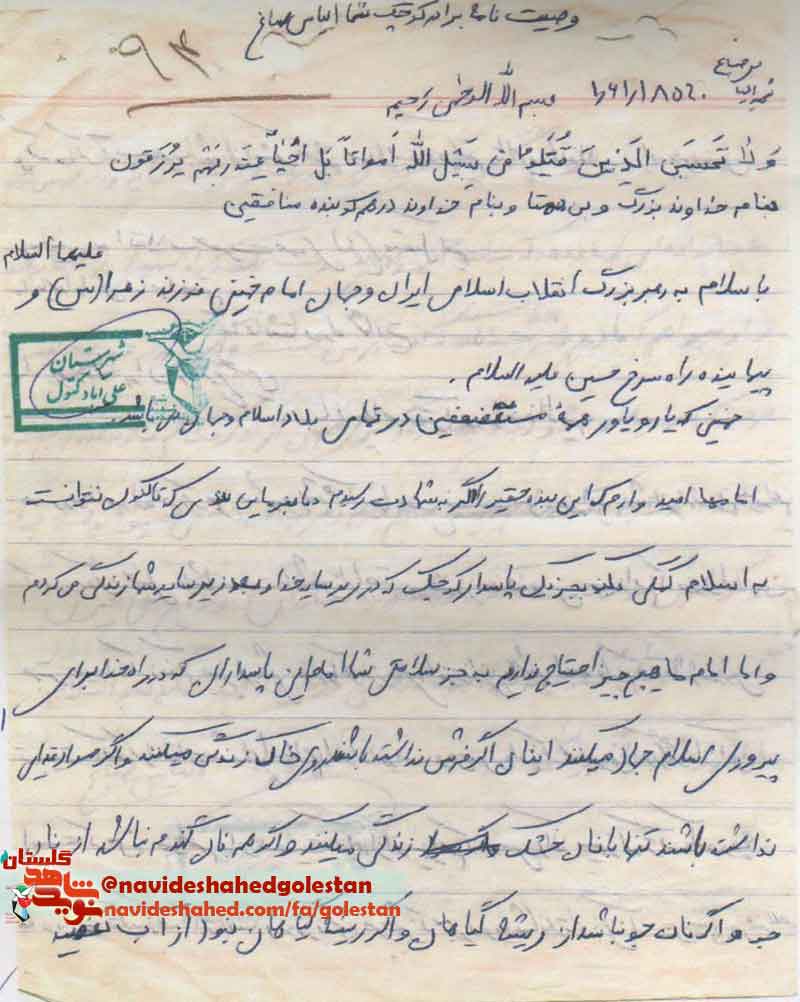 وصیت نامه برادر کوچک شما الیاس صباغ
۹۴
بسم الله الرحمن رحیم
ولا تحسبن الذین قتلوا فی سبیل الله امواتاً بل احیاً عند ربهم یرزقون
بنام خداوند بزرگ و بی همتا و بنام خداوند درهم کوبنده منافقین
علیها السلام
با سلام به رهبر بزرگ انقلاب اسلامی ایران و جهان امام خمینی فرزند زهرا (س) و
پیماینده راه سرخ حسین علیه السلام .
خمینی که یار و یاور همه مستضعفین در تمامی بلاد اسلام و جهان می باشد.
شهرستان
علی آباد کتول
اماما امید وارم که این بنده حقیر اگر به شهادت رسیدم که تاکنون نتوانست
به اسلام کمکی بکند بجز یک پاسدار کوچک که در زیر سایه خدا و بعد زیر سایه شما زندگی می کردم
و اما امام ما هیچ چیز احتیاج نداریم به جز سلامتی شما امام این پاسدارانی که در راه خدا برای
پیروزی اسلام جهاد میکنند اینان اگر فرش نداشته باشند روی خاک زندگی میکنند و اگر غذایی
نداشته باشند تنها با نان خشک زندگی میکنند و اگر هم نان گندم نباشد از نان
جو و اگر نان جو نباشد از ریشه گیاهان و اگر ریشه گیاهان نبود از آب
گلستان
نوید شاهد
@navideshahedgolestan
navideshahed.com/fa/golestan